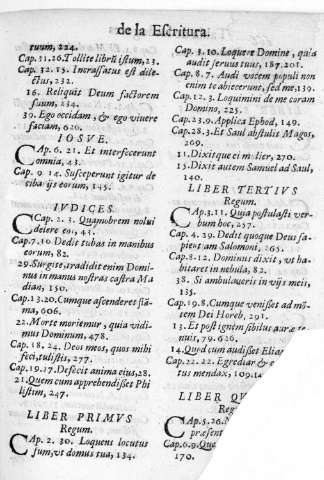 de la Escritura.
tuum, 224.
Cap. 31.26. Tollite librũ istum, 23.
Cap. 32. 15. Incrassatus est dilectus, 232.
16. Reliquit Deum factorem
suum, 234.
39. Ego occidam, & ego vivere
faciam, 626.
IOSVE.
CAp. 6. 21. Et interfecerunt
omnia, 43.
Cap. 9 14. Susceperunt igitur de
cibarijs eorum, 145.
IVDICES.
CAp. 2. 3. Quamobrem nolui
delere eos, 41.
Cap. 7.20. Dedit tubas in manibus
eorum, 82.
29. Surgite, tradidit enim Dominus
in manus nostras castra Madian,
150.
Cap. 13.20. Cumque ascenderet flãma,
606.
22. Morte moriemur, quia vidimus
Dominum, 478.
Cap. 18. 24. Deos meos, quos mihi
feci, tulistis, 277.
Cap. 19.17. Defecit anima eius, 28.
21. Quem cum apprehendißet Philistim,
247.
LIBER PRIMVS
Regum.
CAp. 2. 30. Loquens locutus
sum, vt domus tua, 134.
Cap. 3. 10. Loquere Domine, quia
audit servus tuus, 187. 201.
Cap. 8. 7. Audi vocem populi non
enim te abiecerunt, sed me, 139.
Cap. 12. 3. Loquimini de me coram
Domino, 225.
Cap. 23.9. Applica Ephod, 149.
Cap. 28.3. Et Saul abstulit Magos,
269.
11. Dixitque ei mulier, 270.
15. Dixit autem Samuel ad Saul,
140.
LIBER TERTIVS
Regum.
CAp. 3.11. Quia postulasti verbum
hoc, 257.
Cap. 4. 29. Dedit quoque Deus sapientiam
Salomoni, 265.
Cap. 8.12. Dominus dixit, vt habitaret
in nebula, 82.
38. Si ambulaveris in vijs meis,
135.
Cap. 19.8. Cumque venißet ad mõtem
Dei Horeb, 291.
13. Et post ignem sibilus auræ tenuis,
79. 626.
14. Quod cum audißet Elias
Cap. 22. 22. Egrediar &
tus mendax, 109.14
LIBER QV
Reg
CAp. 5. 26. N
præsent
Cap. 6.9. Que
170.